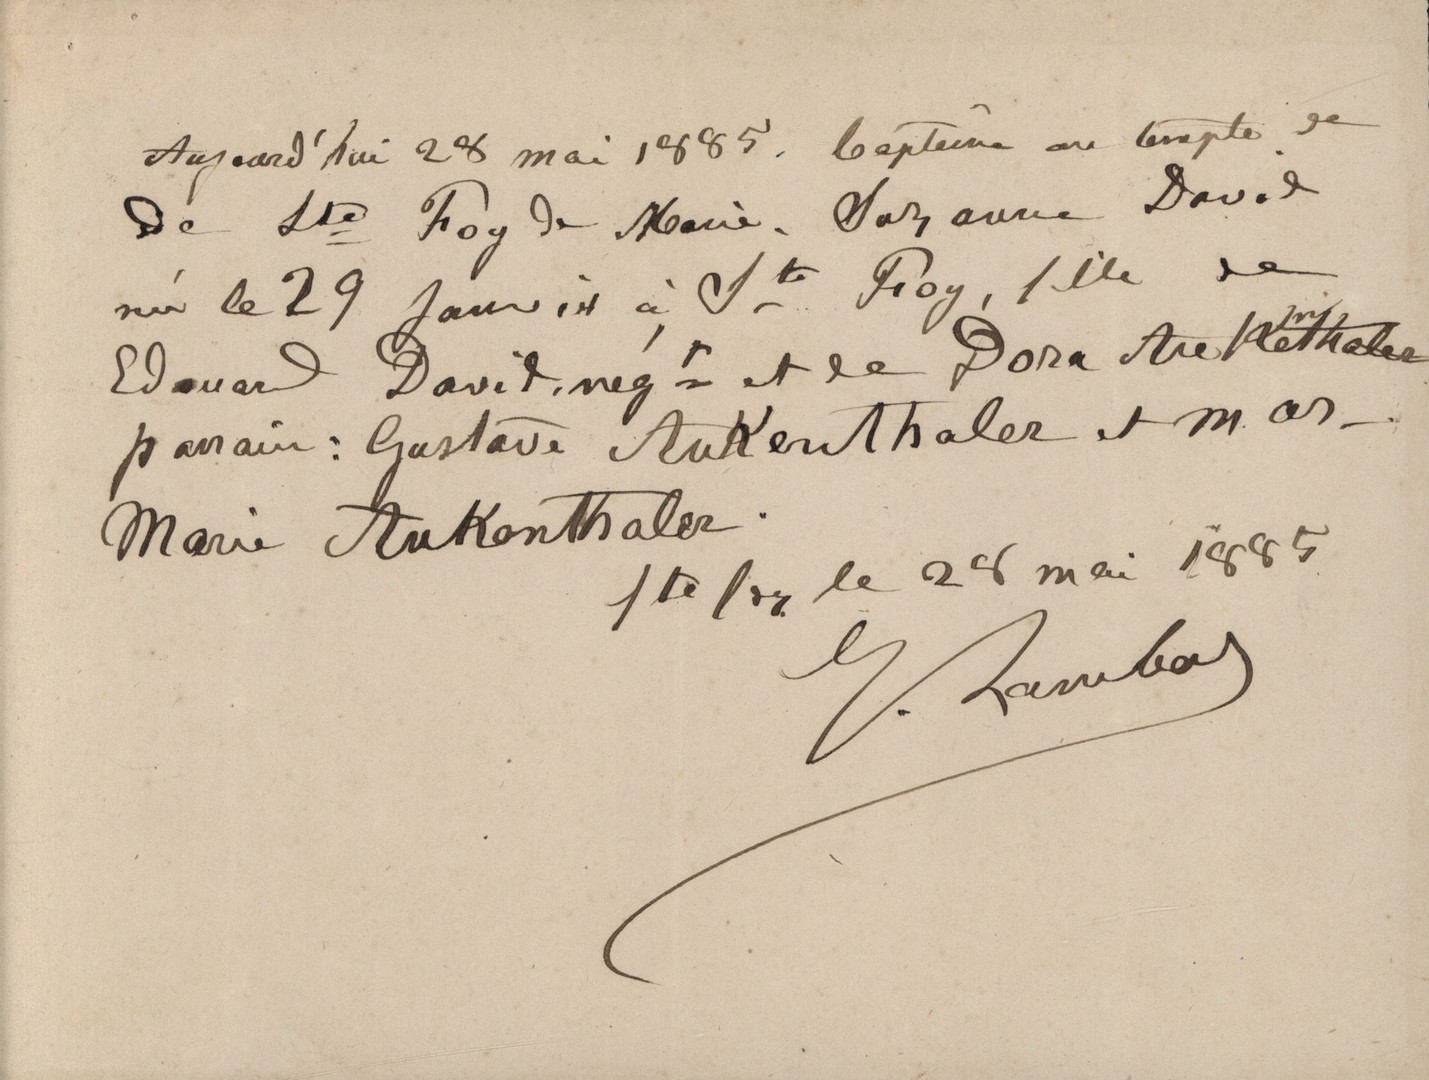 Aujourd'hui 28 mai 1885. baptême au temple de
de Ste Foy de Marie. Suzanne David
née le 29 Janvier à Ste Foy, fille de
Edouard David, négt et de Dora Aukenthaler
parrain : Gustave AuKenthaler et mar-
Marie AuKenthaler.
Ste Foy le 28 mai 1885